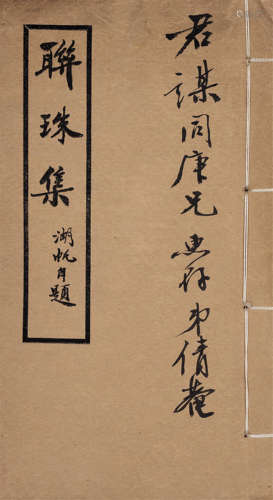 君謀同庚兄惠存弟倩菴
聯珠集
湖帆自題